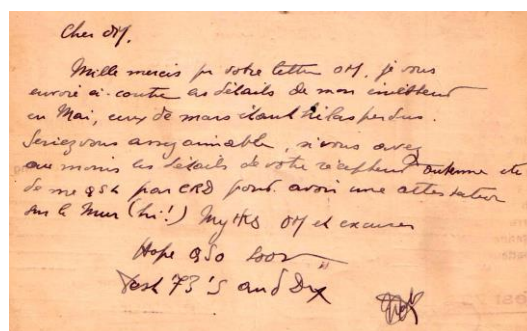 Cher OM.
Mille mercis pr votre lettre OM, je vous
envoie ci-contre les détails de mon émetteur
en Mai, ceux de mars étant hélas perdus.
Seriez vous assez aimable, si vous avez
au moins les détails de votre récepteur antenne etc
de me QSL par CRD pour avoir une attestation
sur le Mur (hi!) My tks OM et excuses
Hope QSO soon
Best 73's and Dx